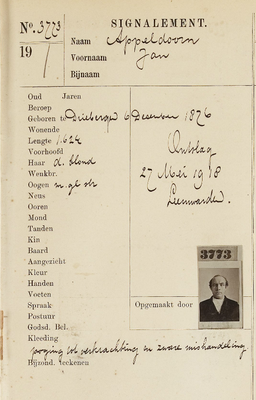 SIGNALEMENT.
No. 3773
Naam Appeldoorn
19
Voornaam Jan
Bijnaam
Oud Jaren
Beroep
Geboren te Driebergen 6 December 1876
Wonende
Lengte 1.624 Ontslag
Voorhoofd
Haar d. blond 27 Mei 1918
Wenkbr.
Oogen Leeuwarden.
Neus
Ooren
Mond
Tanden
Kin
Baard
Aangezicht 3773
Kleur
Handen
Voeten
Spraak Opgemaakt door
Postuur
Godsd. Bel.
Kleeding
poging tot verkrachting en zware mishandeling
Bijzond. teekenen